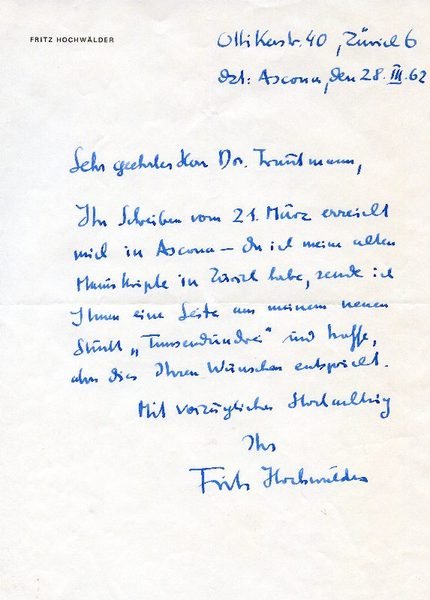 FRITZ HOCHWÄLDER
Ottikerstr. 40, Zürich 6
dzt: Ascona, den 28. III. 62
Sehr geehrter Herr Dr. Trautmann,
Ihr Schreiben vom 21. März erreicht
mich in Ascona – da ich meine alten
Manuskripte in Zürich habe, sende ich
Ihnen eine Seite aus meinem neuen
Stück „Tausendunddrei" und hoffe,
dass dies Ihren Wünschen entspricht.
Mit vorzüglicher Hochachtung
Ihr
Fritz Hochwälder